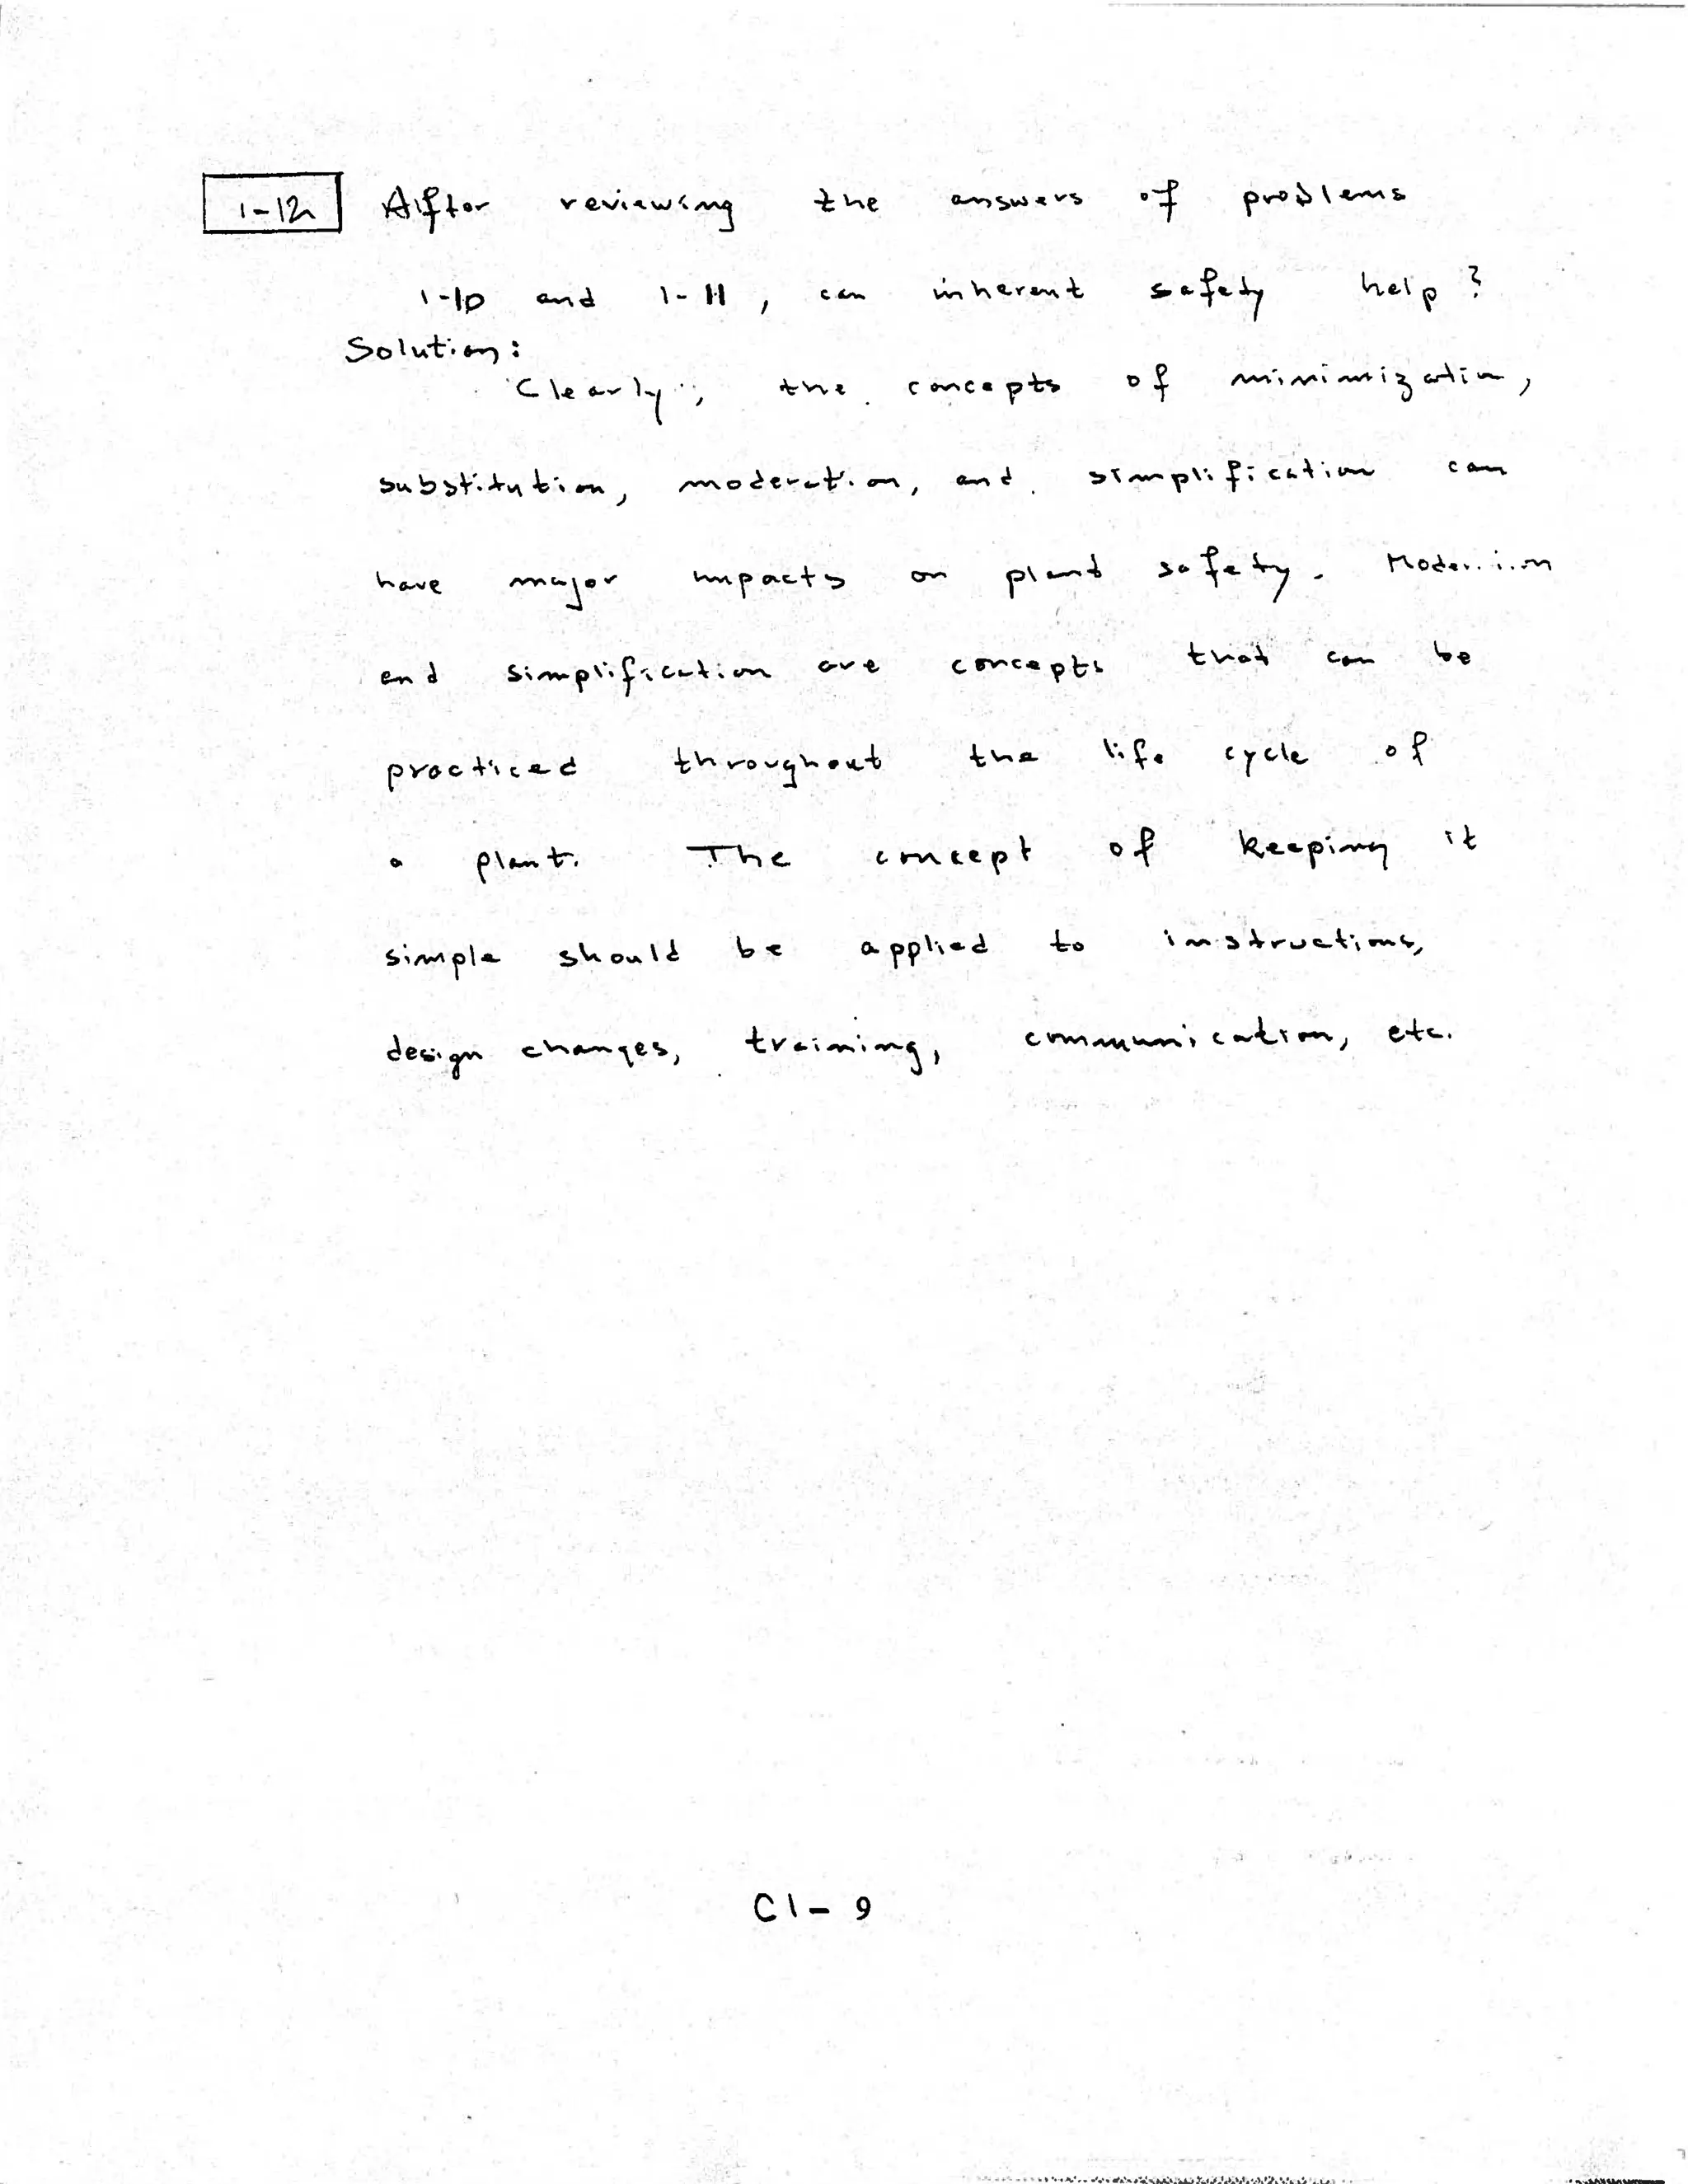 1-12 After reviewing the answers of problems
1-10 and 1-11, can inherent safety help?
Solution:
Clearly, the concepts of minimization,
substitution, moderation, and simplification can
have major impacts on plant safety.
and simplification are concepts that can be
practiced throughout the life cycle of
a plant. The concept of keeping it
simple should be applied to instructions,
design changes, training, communication, etc.
C1-9